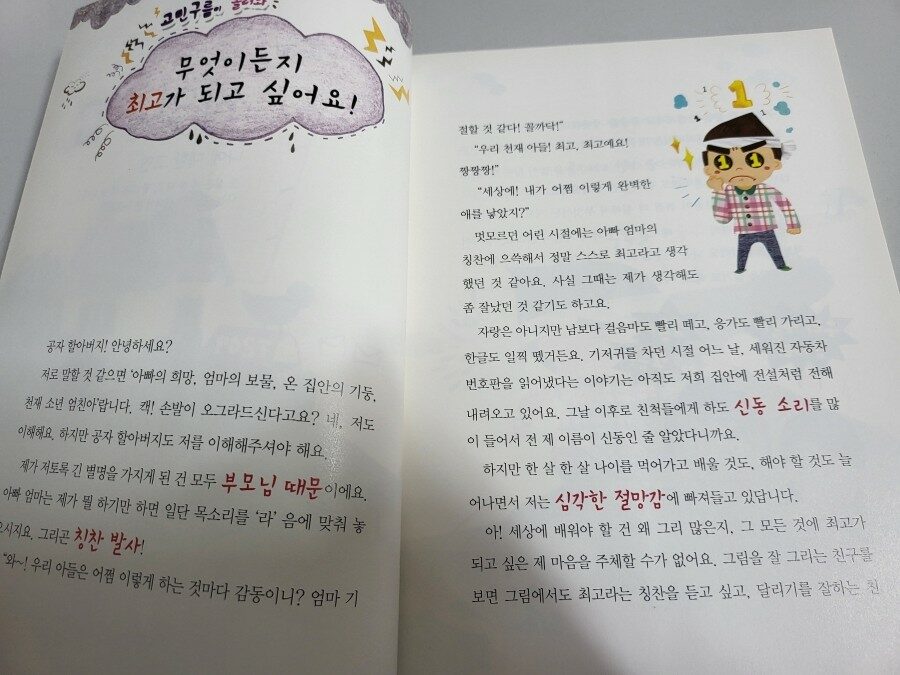 고민구름이 몰려와
무엇이든지
최고가 되고 싶어요!
공자 할아버지! 안녕하세요?
저로 말할 것 같으면 '아빠의 희망, 엄마의 보물, 온 집안의 기둥,
천재 소년 엄친아'랍니다. 캑! 손발이 오그라드신다고요? 네, 저도
이해해요. 하지만 공자 할아버지도 저를 이해해주셔야 해요.
제가 저토록 긴 별명을 가지게 된 건 모두 부모님 때문이에요.
아빠 엄마는 제가 뭘 하기만 하면 일단 목소리를 '라' 음에 맞춰 놓
으시지요. 그리곤 칭찬 발사!
"와~! 우리 아들은 어쩜 이렇게 하는 것마다 감동이니? 엄마 기
1
절할 것 같다! 꼴까닥!"
"우리 천재 아들! 최고, 최고예요!
짱짱짱!"
"세상에! 내가 어쩜 이렇게 완벽한
애를 낳았지?"
멋모르던 어린 시절에는 아빠 엄마의
칭찬에 으쓱해서 정말 스스로 최고라고 생각
했던 것 같아요. 사실 그때는 제가 생각해도
좀 잘났던 것 같기도 하고요.
자랑은 아니지만 남보다 걸음마도 빨리 떼고, 응가도 빨리 가리고,
한글도 일찍 뗐거든요. 기저귀를 차던 시절 어느 날, 세워진 자동차
번호판을 읽어냈다는 이야기는 아직도 저희 집안에 전설처럼 전해
내려오고 있어요. 그날 이후로 친척들에게 하도 신동 소리를 많
이 들어서 전 제 이름이 신동인 줄 알았다니까요.
하지만 한 살 한 살 나이를 먹어가고 배울 것도, 해야 할 것도 늘
어나면서 저는 심각한 절망감에 빠져들고 있답니다.
아! 세상에 배워야 할 건 왜 그리 많은지, 그 모든 것에 최고가
되고 싶은 제 마음을 주체할 수가 없어요. 그림을 잘 그리는 친구를
보면 그림에서도 최고라는 칭찬을 듣고 싶고, 달리기를 잘하는 친